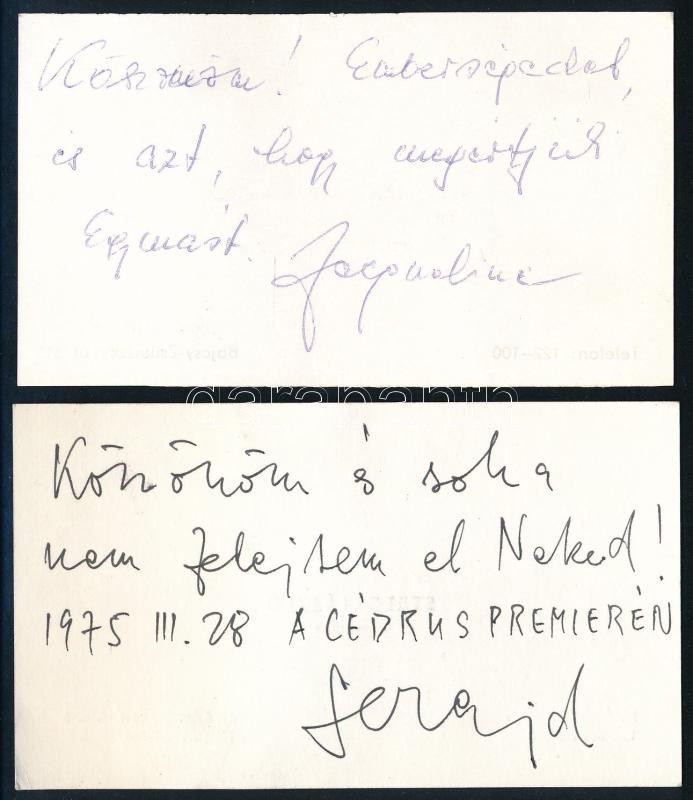 Köszönöm! Emberségedet,
és azt, hogy megértjük
Egymást.
Jacqueline
Telefon: 122-100
Bajcsy-Zsilinszky út
darabanth
Köszönöm és soha
nem felejtem el Neked!
1975 III. 28 A CÉDRUS PREMIERÉN